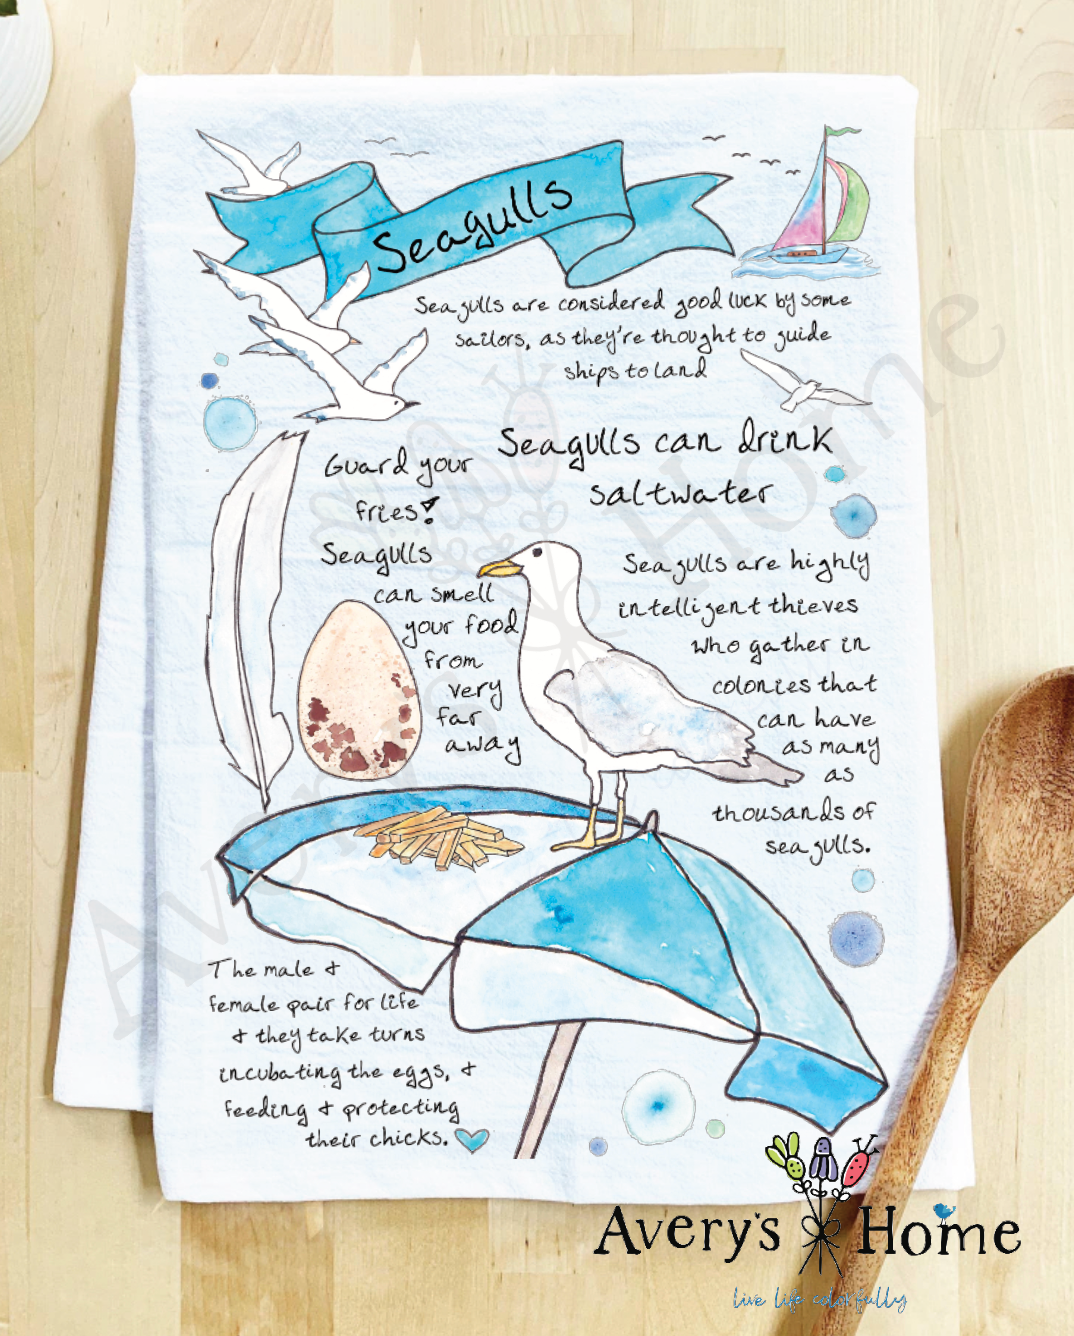 Seagulls
Seagulls are considered good luck by some
sailors, as they're thought to guide
ships to land
Seagulls can drink
saltwater
Guard your
fries!
Seagulls
can smell
your food
from
very
far
away
Seagulls are highly
intelligent thieves
who gather in
colonies that
can have
as many
as
thousands of
seagulls.
The male &
female pair for life
& they take turns
incubating the eggs, &
feeding & protecting
their chicks.
Avery's Home
Avery's Home
live life colorfully